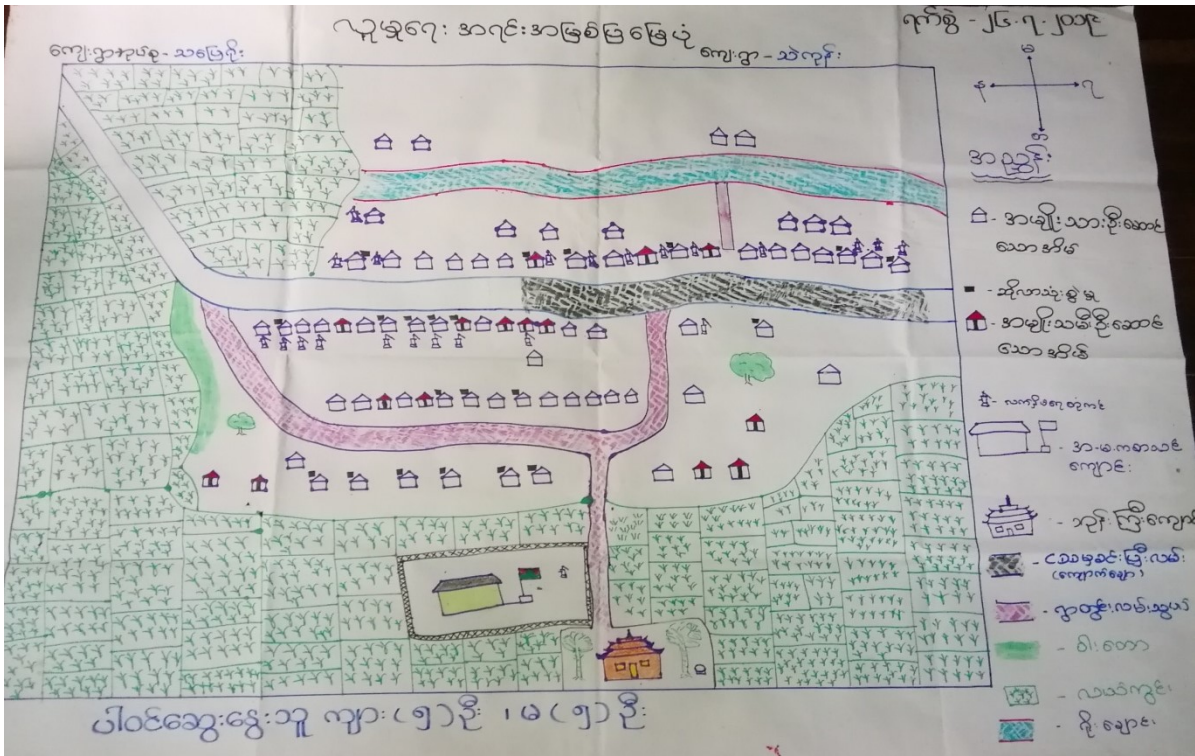 လူမှုရေး အရင်းအမြစ်ပြမြေပုံ
ရက်စွဲ - ၂၆.၇.၂၀၁၉
ကျေးရွာအုပ်စု - သပြေဂိုး
ကျေးရွာ - သဲကုန်း
အညွှန်း
- အမျိုးသားဦးဆောင်
သောအိမ်
- ဆိုလာသုံးစွဲမှု
- အမျိုးသမီးဦးဆောင်
သောအိမ်
- လက်နှိပ်ရေတုံကင်
- အ.မ.က စာသင်
ကျောင်း
- ဘုန်းကြီးကျောင်း
(ကျောက်ချော)
- ရွာတွင်းလမ်းသွယ်
- ဝါးတော
- လယ်ကွင်း
- ရိုးချောင်း
ပါဝင်ဆွေးနွေးသူ ကျား (၅) ဦး ၊ မ (၅) ဦး